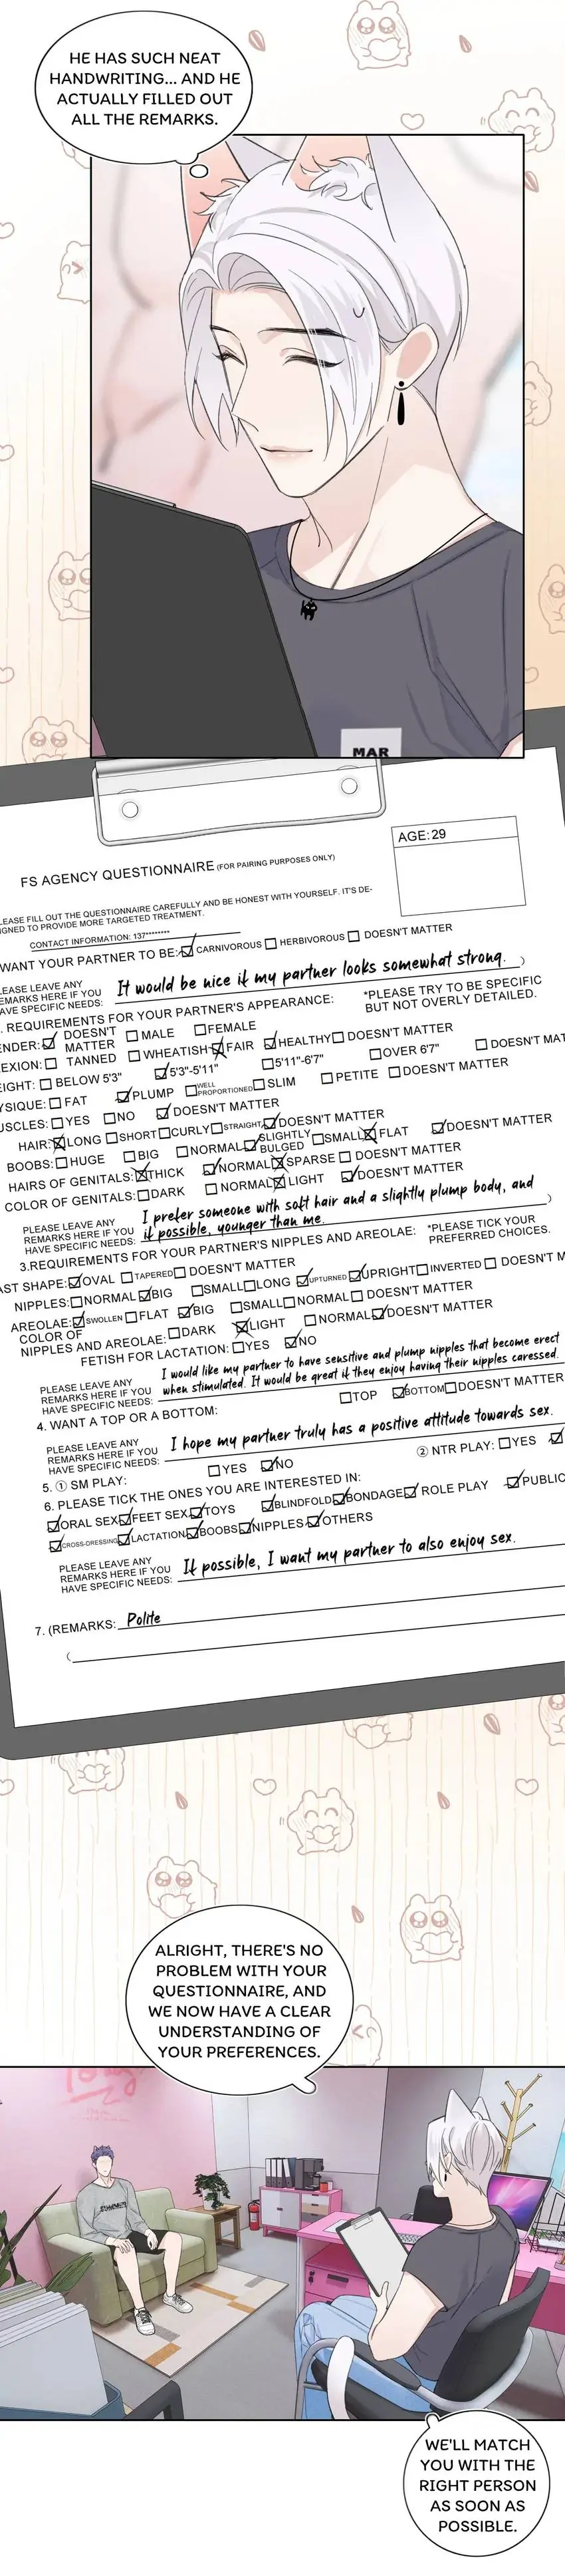 HE HAS SUCH NEAT
HANDWRITING... AND HE
ACTUALLY FILLED OUT
ALL THE REMARKS.
MAR
AGE: 29
FS AGENCY QUESTIONNAIRE (FOR PAIRING PURPOSES ONLY)
LEASE FILL OUT THE QUESTIONNAIRE CAREFULLY AND BE HONEST WITH YOURSELF. IT'S DE-
IGNED TO PROVIDE MORE TARGETED TREATMENT.
CONTACT INFORMATION: 137********
WANT YOUR PARTNER TO BE: CARNIVOROUS HERBIVOROUS DOESN'T MATTER
LEASE LEAVE ANY
EMARKS HERE IF YOU
AVE SPECIFIC NEEDS: It would be nice if my partner looks somewhat strong. )
. REQUIREMENTS FOR YOUR PARTNER'S APPEARANCE: *PLEASE TRY TO BE SPECIFIC
BUT NOT OVERLY DETAILED.
ENDER: DOESN'T MATTER MALE FEMALE
EXION: TANNED WHEATISH FAIR HEALTHY DOESN'T MATTER
EIGHT: BELOW 5'3" 5'3"-5'11" 5'11"-6'7" OVER 6'7" DOESN'T MAT
YSIQUE: FAT PLUMP WELL PROPORTIONED SLIM PETITE DOESN'T MATTER
USCLES: YES NO DOESN'T MATTER
HAIR: LONG SHORT CURLY STRAIGHT DOESN'T MATTER
BOOBS: HUGE BIG NORMAL SLIGHTLY BULGED SMALL FLAT DOESN'T MATTER
HAIRS OF GENITALS: THICK NORMAL SPARSE DOESN'T MATTER
COLOR OF GENITALS: DARK NORMAL LIGHT DOESN'T MATTER
PLEASE LEAVE ANY
REMARKS HERE IF YOU
HAVE SPECIFIC NEEDS: I prefer someone with soft hair and a slightly plump body, and
if possible, younger than me. )
3.REQUIREMENTS FOR YOUR PARTNER'S NIPPLES AND AREOLAE: *PLEASE TICK YOUR
PREFERRED CHOICES.
AST SHAPE: OVAL TAPERED DOESN'T MATTER
NIPPLES: NORMAL BIG SMALL LONG UPTURNED UPRIGHT INVERTED DOESN'T M
AREOLAE: SWOLLEN FLAT BIG SMALL NORMAL DOESN'T MATTER
COLOR OF
NIPPLES AND AREOLAE: DARK LIGHT NORMAL DOESN'T MATTER
FETISH FOR LACTATION: YES NO
PLEASE LEAVE ANY
REMARKS HERE IF YOU
HAVE SPECIFIC NEEDS: I would like my partner to have sensitive and plump nipples that become erect
when stimulated. It would be great if they enjoy having their nipples caressed.
4. WANT A TOP OR A BOTTOM: TOP BOTTOM DOESN'T MATTER
PLEASE LEAVE ANY
REMARKS HERE IF YOU
HAVE SPECIFIC NEEDS: I hope my partner truly has a positive attitude towards sex.
5. ① SM PLAY: YES NO ② NTR PLAY: YES
6. PLEASE TICK THE ONES YOU ARE INTERESTED IN:
ORAL SEX FEET SEX TOYS BLINDFOLD BONDAGE ROLE PLAY PUBLIC
CROSS-DRESSING LACTATION BOOBS NIPPLES OTHERS
PLEASE LEAVE ANY
REMARKS HERE IF YOU
HAVE SPECIFIC NEEDS: If possible, I want my partner to also enjoy sex.
7. (REMARKS: Polite
(
ALRIGHT, THERE'S NO
PROBLEM WITH YOUR
QUESTIONNAIRE, AND
WE NOW HAVE A CLEAR
UNDERSTANDING OF
YOUR PREFERENCES.
WE'LL MATCH
YOU WITH THE
RIGHT PERSON
AS SOON AS
POSSIBLE.